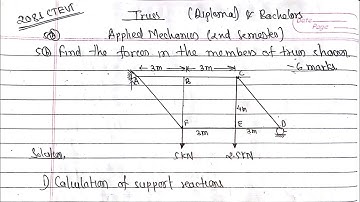 2021 CTEVT
Truss (Diploma) & Bachelors
Date
Page
5(b) Applied Mechanics (2nd semester)
5(b) Find the forces in the members of truss shown
- 6 marks
3m 3m
A B C
4m
F E D
3m 3m
5KN 2.5KN
Solution,
1) Calculation of support reactions